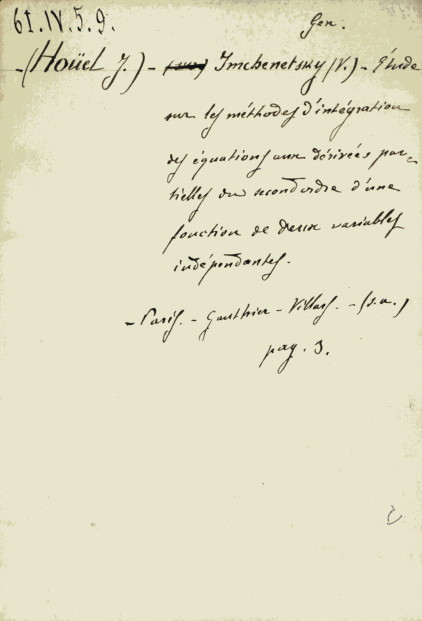 61.IV.5.9.
Gen.
-(Hoüel J.) - Imchenetsky (V.) - Étude
sur les méthodes d'intégration
des équations aux dérivées par-
tielles du second ordre d'une
fonction de deux variables
indépendantes.
- Paris. - Gauthier - Villars. - (s.a.)
pag. 3.